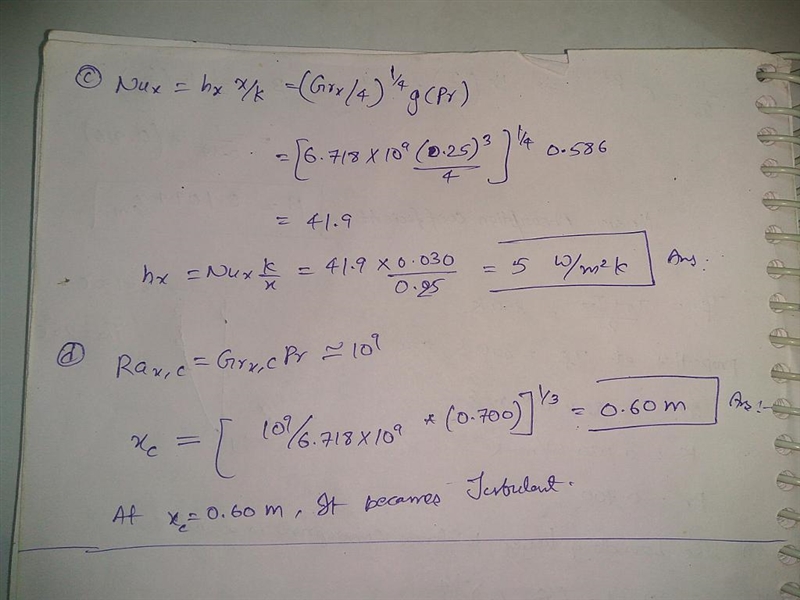 (c) Nux = hx x/k = (Grx/4)^1/4 g(Pr)
= [6.718 × 10^9 (0.25)^3 / 4]^1/4 0.586
= 41.9
hx = Nux k/x = 41.9 × 0.030 / 0.25 = 5 W/m²k Ans:
(d) Rax,c = Grx,c Pr ≃ 10^9
xc = [10^9/6.718×10^9 * (0.700)]^1/3 = 0.60 m Ans:-
At xc = 0.60 m, It becomes Turbulent.